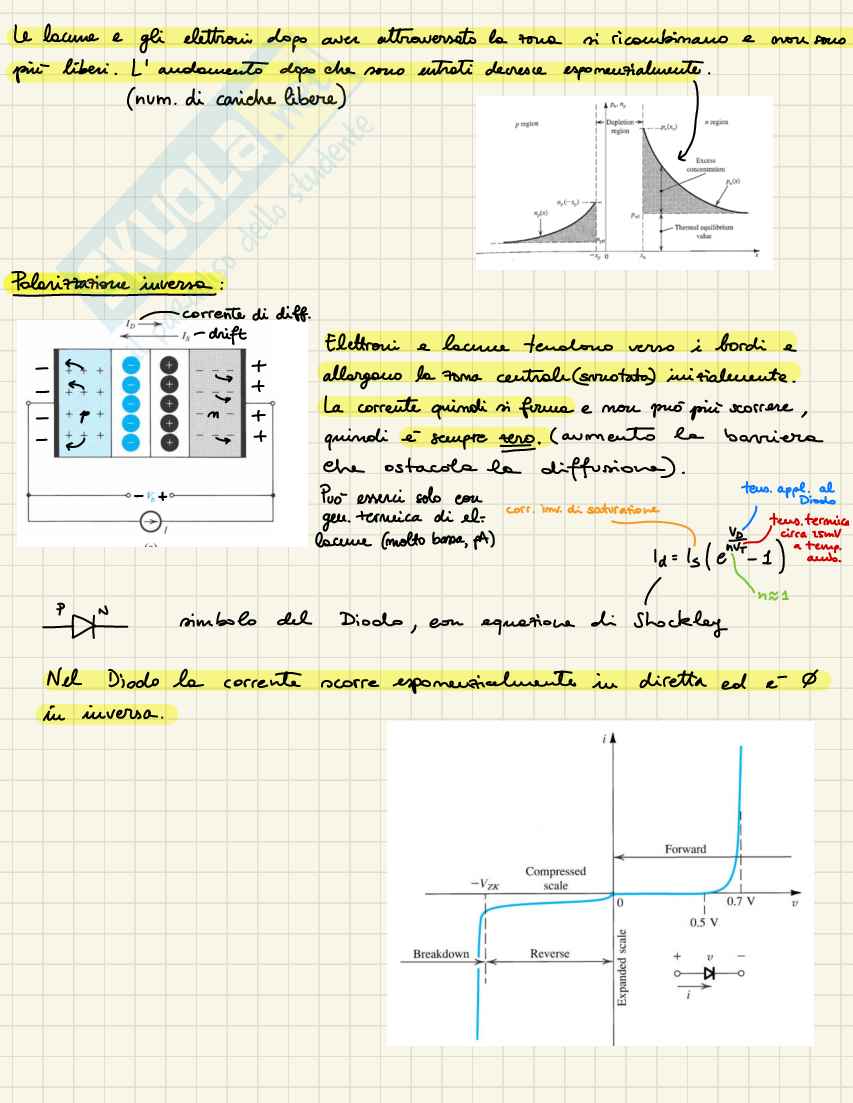 Le lacune e gli elettroni dopo aver attraversato la zona si ricombinano e non sono
più liberi. L'andamento dopo che sono entrati decresce esponenzialmente.
(num. di cariche libere)
pₙ, nₚ
p region
Depletion
region
n region
pₙ(xₙ)
Excess
concentration
pₙ(x)
nₚ(−xₚ)
nₚ(x)
pₙ₀
Thermal equilibrium
value
nₚ₀
−xₚ 0 xₙ x
SKUOLA.net
il paradiso dello studente
Polarizzazione inversa:
I_D corrente di diff.
I_S - drift
p n
- V_R +
I
Elettroni e lacune tendono verso i bordi e
allargano la zona centrale (svuotata) inizialmente.
La corrente quindi si ferma e non può più scorrere,
quindi è sempre zero. (aumento la barriera
che ostacola la diffusione).
Può esserci solo con
gen. termica di el-
lacune (molto bassa, pA)
corr. inv. di saturazione
tens. appl. al
Diodo
tens. termica
circa 25mV
a temp.
amb.
I_d = I_S (e^(V_D/nV_T) - 1)
n≈1
P N
simbolo del Diodo, con equazione di Shockley
Nel Diodo la corrente scorre esponenzialmente in diretta ed è Ø
in inversa.
i
Forward
Compressed
scale
−V_ZK
0
0.5 V
0.7 V
v
Breakdown
Reverse
Expanded scale
+ v −
i